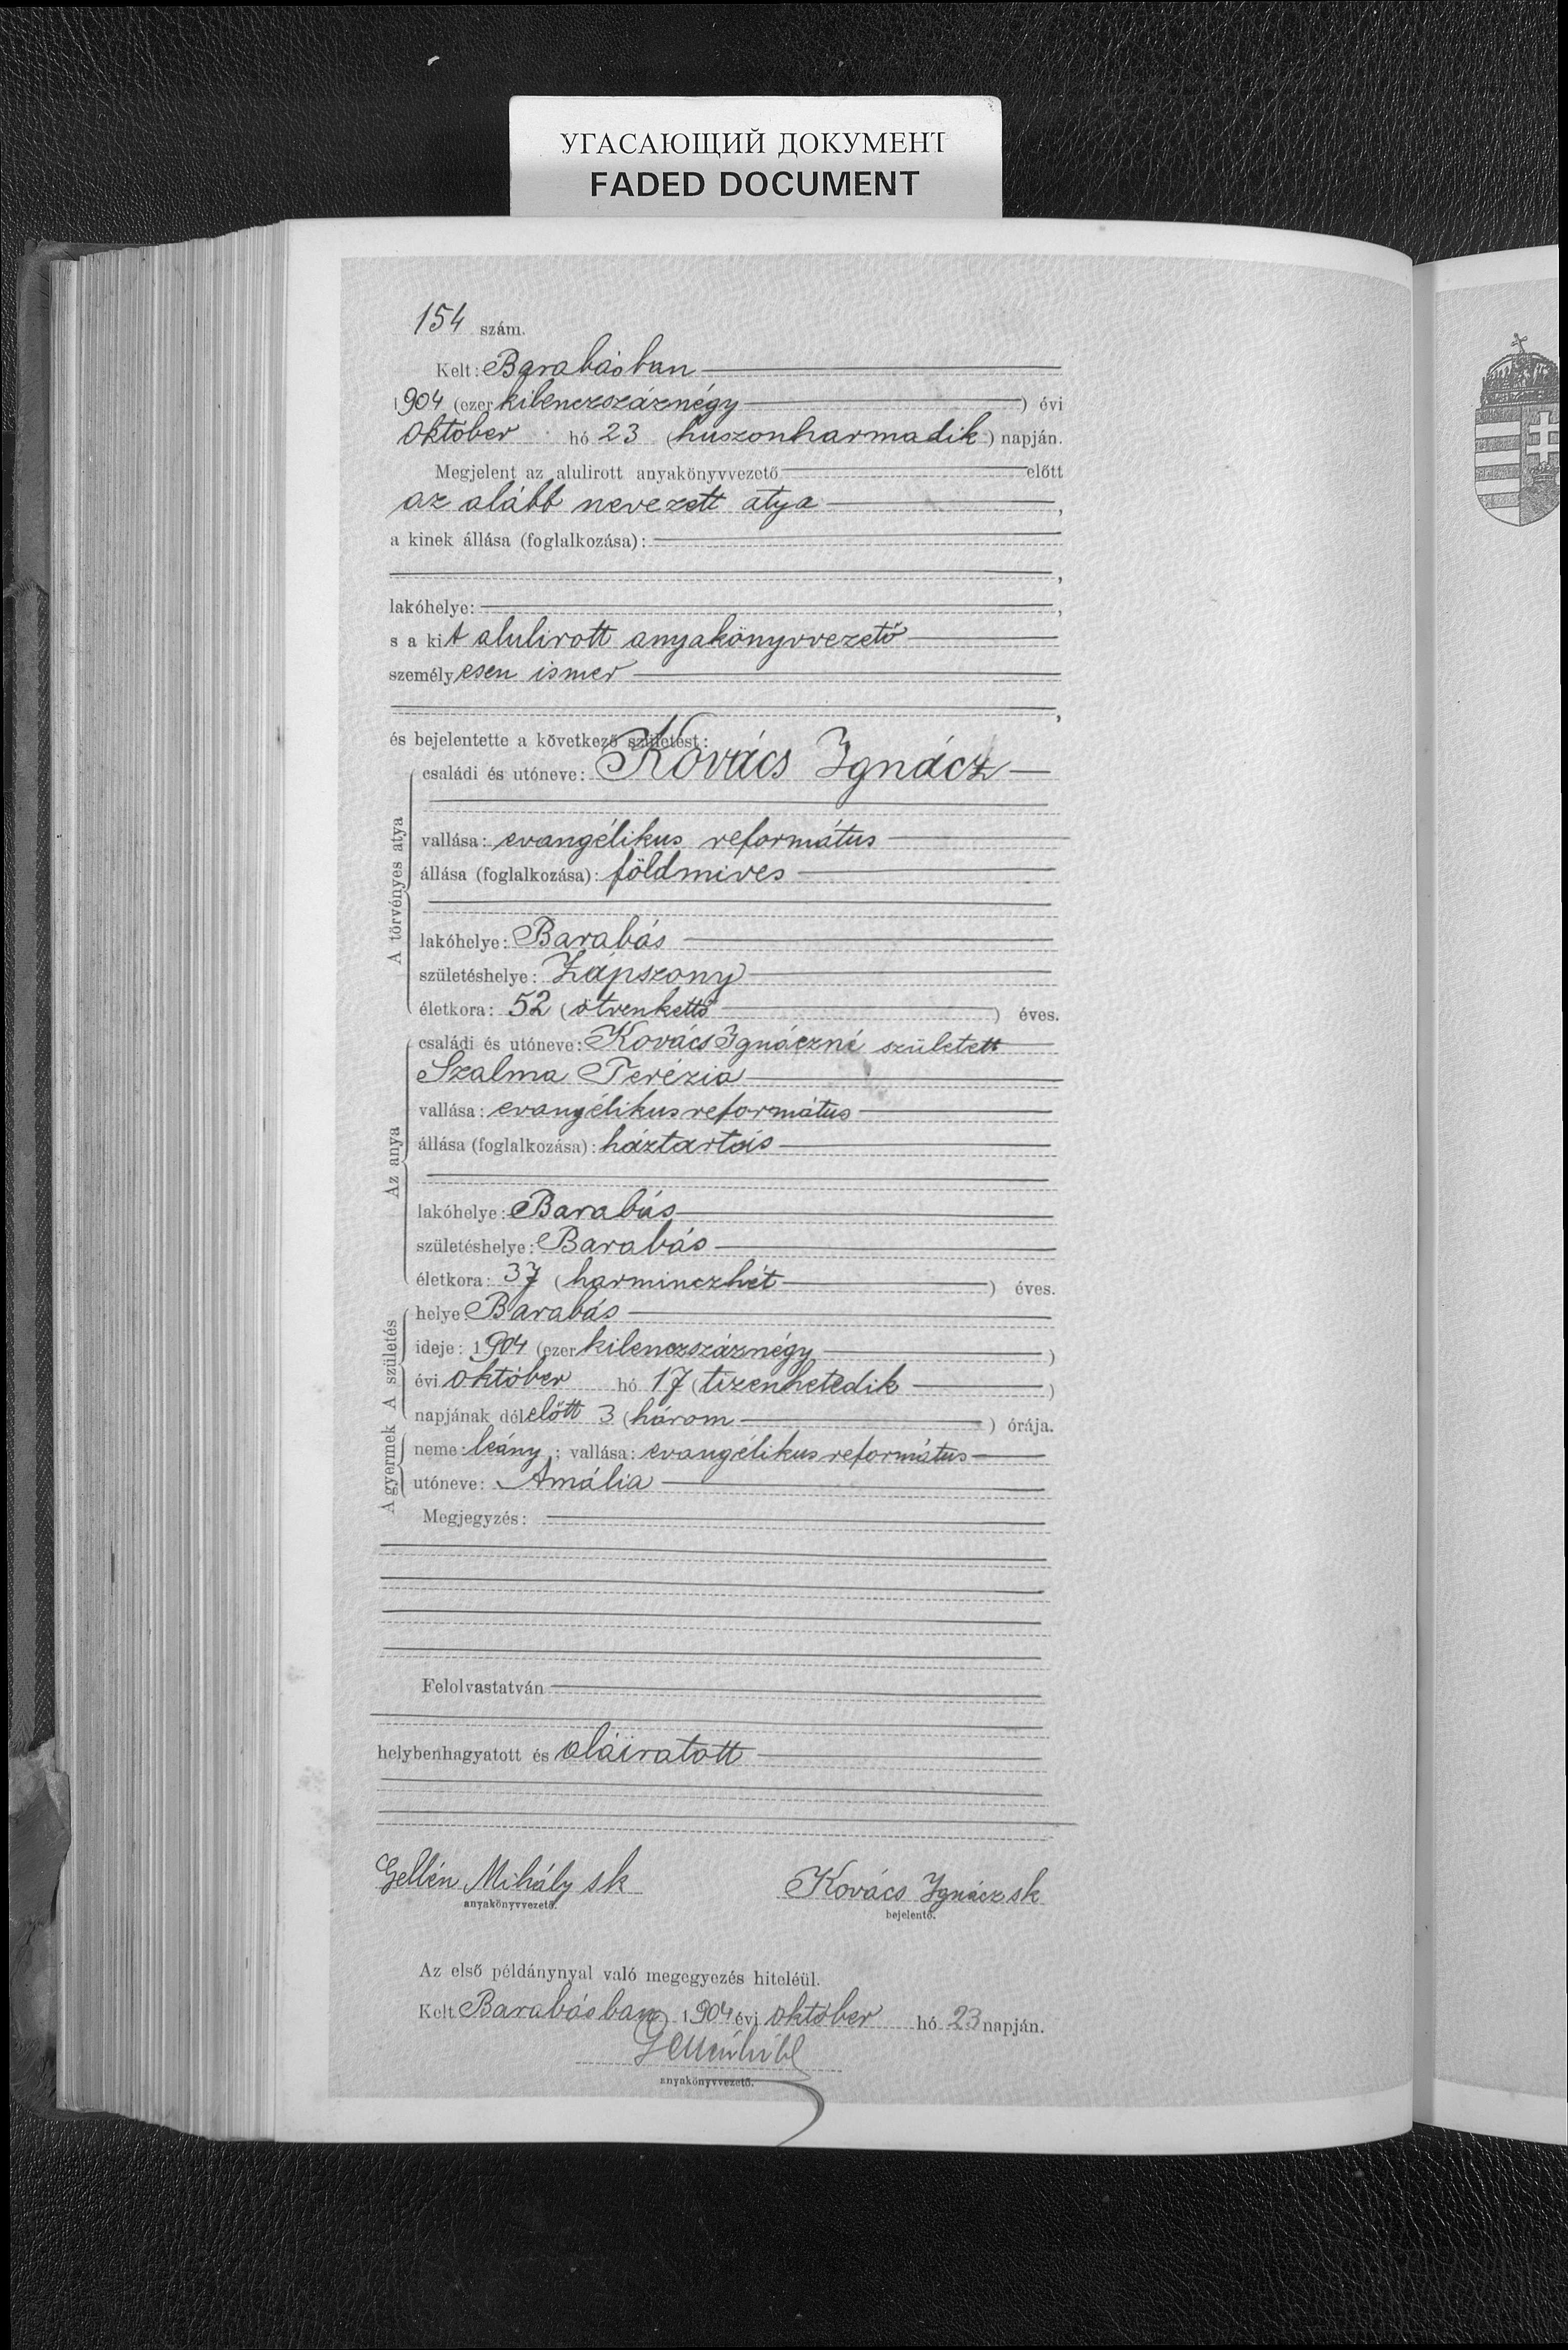 УГАСАЮЩИЙ ДОКУМЕНТ
FADED DOCUMENT
154 szám.
Kelt: Barabásban
1904 (ezer kilenczszáznégy) évi
október hó 23 (huszonharmadik) napján.
Megjelent az alulirott anyakönyvvezető előtt
az alább nevezett atya,
a kinek állása (foglalkozása):
,
lakóhelye: ,
s a kit alulirott anyakönyvvezető
személyesen ismer
,
és bejelentette a következő születést:
A törvényes atya
családi és utóneve: Kovács Ignácz
vallása: evangélikus református
állása (foglalkozása): földmives
lakóhelye: Barabás
születéshelye: Zápszony
életkora: 52 (ötvenkettő) éves.
Az anya
családi és utóneve: Kovács Ignáczné született
Szalma Terézia
vallása: evangélikus református
állása (foglalkozása): háztartás
lakóhelye: Barabás
születéshelye: Barabás
életkora: 37 (harminczhét) éves.
A születés
helye Barabás
ideje: 1904 (ezer kilenczszáznégy)
évi október hó 17 (tizenhetedik)
napjának délelőtt 3 (három) órája.
A gyermek
neme: leány; vallása: evangélikus református
utóneve: Amália
Megjegyzés:
Felolvastatván
helybenhagyatott és aláiratott
Gellén Mihály sk Kovács Ignácz sk
anyakönyvvezető. bejelentő.
Az első példánynyal való megegyezés hiteléül.
Kelt Barabásban 1904 évi október hó 23 napján.
anyakönyvvezető.